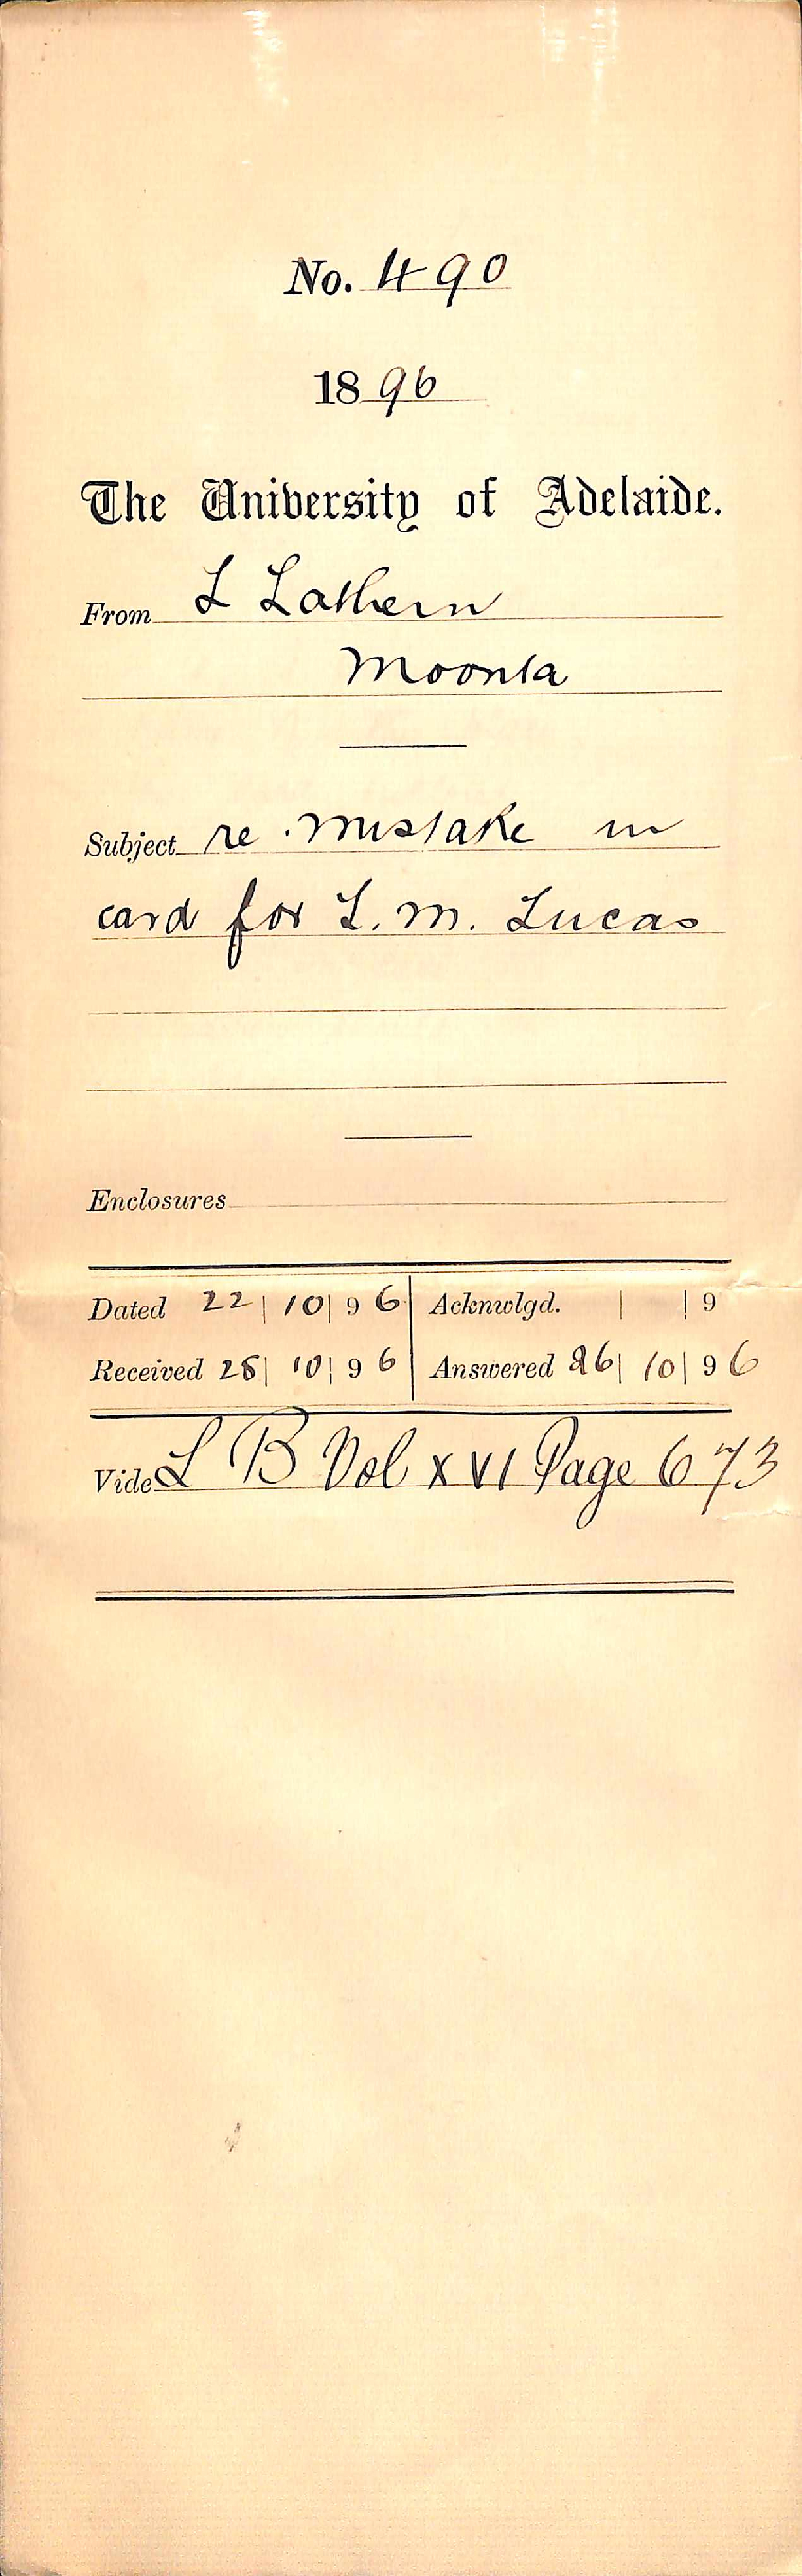 No. 490
1896
The University of Adelaide.
From L Lathern
Moonta
Subject re. Mistake in
card for L. M. Lucas
Enclosures
Dated 22|10|96 Acknwlgd. | |9
Received 25|10|96 Answered 26|10|96
Vide L B Vol XVI Page 673